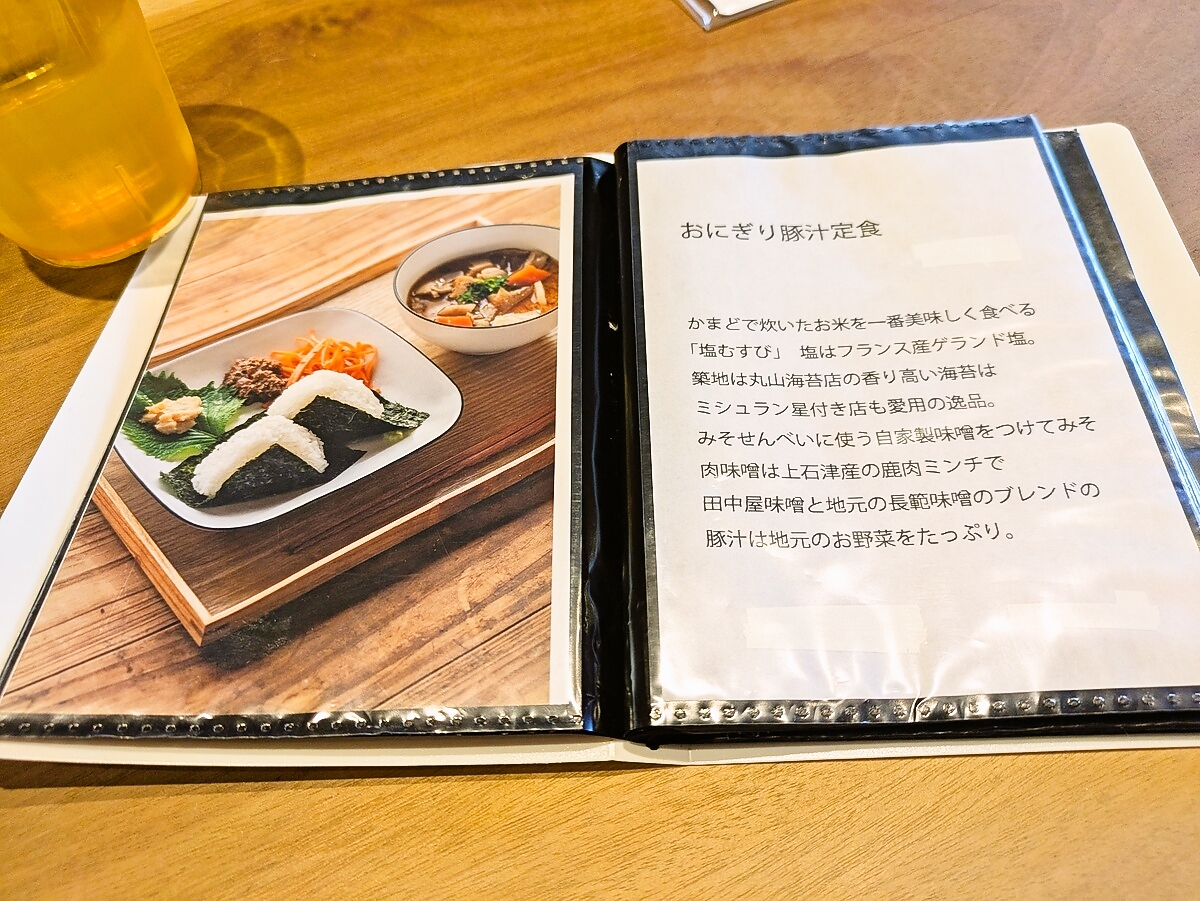 おにぎり豚汁定食
かまどで炊いたお米を一番美味しく食べる
「塩むすび」 塩はフランス産ゲランド塩。
築地は丸山海苔店の香り高い海苔は
ミシュラン星付き店も愛用の逸品。
みそせんべいに使う自家製味噌をつけてみそ
肉味噌は上石津産の鹿肉ミンチで
田中屋味噌と地元の長範味噌のブレンドの
豚汁は地元のお野菜をたっぷり。